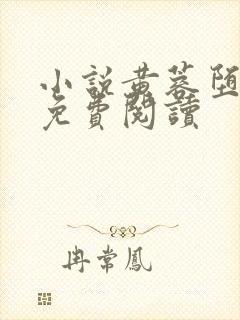 小說黃蓉堕
免費閱讀
冉常鳳